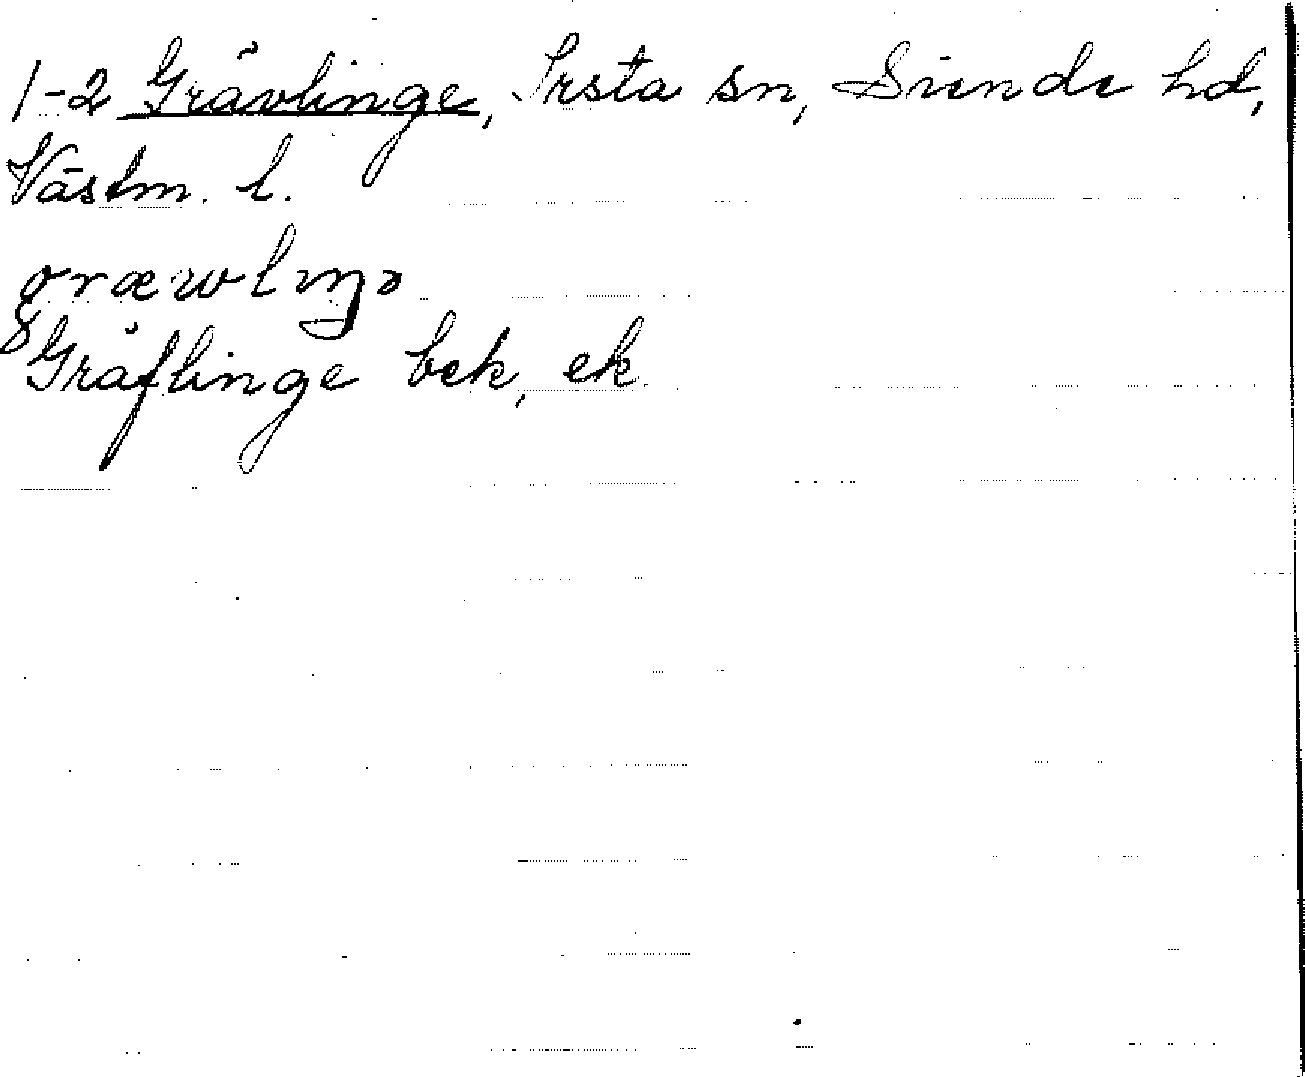 1-2 Grävlinge, Irsta sn, Siende hd,
Västm. l.
græwlıŋə
Gräflinge bek, ek.